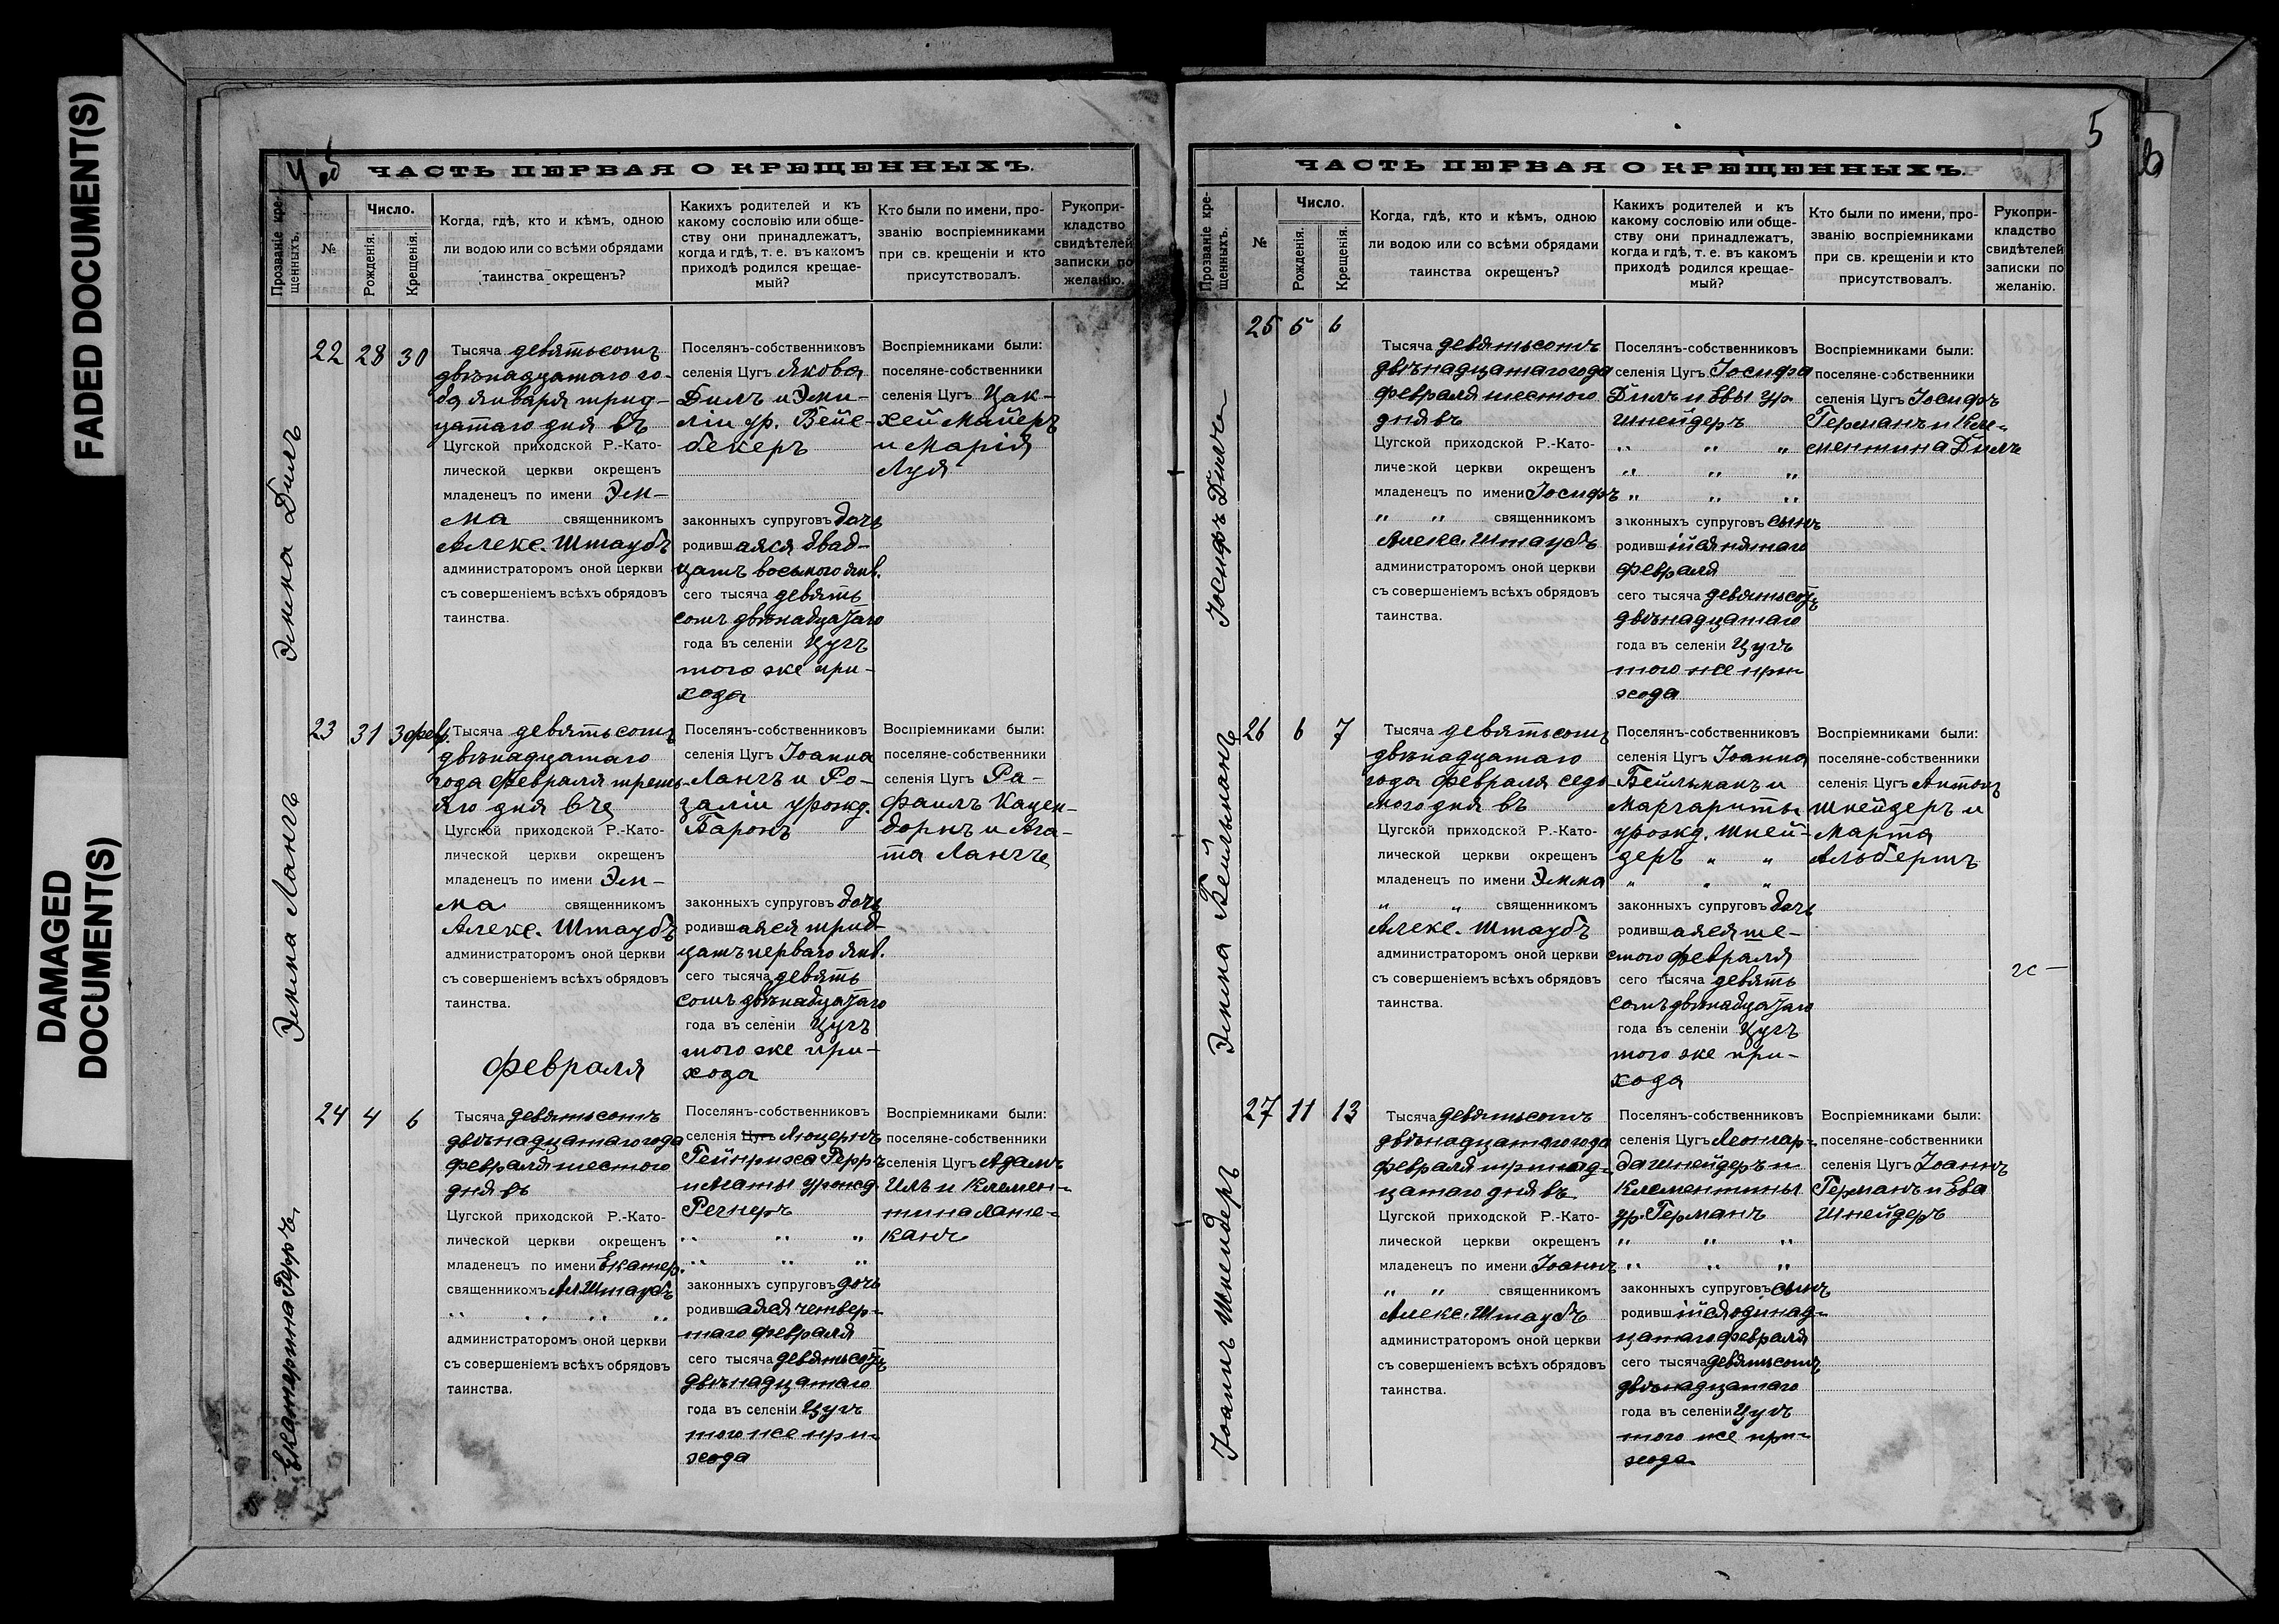 FADED DOCUMENT(S)
DAMAGED
DOCUMENT(S)
4 об
ЧАСТЬ ПЕРВАЯ О КРЕЩЕННЫХЪ.
Прозваніе кре-
щенныхъ.
№
Число.
Рожденія.
Крещенія.
Когда, гдѣ, кто и кѣмъ, одною
ли водою или со всѣми обрядами
таинства окрещенъ?
Какихъ родителей и къ
какому сословію или обще-
ству они принадлежатъ,
когда и гдѣ, т. е. въ какомъ
приходѣ родился крещае-
мый?
Кто были по имени, про-
званію воспріемниками
при св. крещеніи и кто
присутствовалъ.
Рукопри-
кладство
свидѣтелей
записки по
желанію.
Эмма Дилъ
22 28 30
Тысяча девятьсотъ
двѣнадцатаго го-
да января трид-
цатаго дня въ
Цугской приходской Р.-Като-
лической церкви окрещенъ
младенецъ по имени Эм-
ма священникомъ
Алекс. Штаубъ
администраторомъ оной церкви
съ совершеніемъ всѣхъ обрядовъ
таинства.
Поселянъ-собственниковъ
селенія Цугъ Якова
Дилъ и Эми-
ліи ур. Вейс-
бекеръ
законныхъ супруговъ дочь
родившаяся двад-
цать восьмого янв.
сего тысяча девять
сотъ двѣнадцатаго
года въ селеніи Цугъ
того же при-
хода
Воспріемниками были:
поселяне-собственники
селенія Цугъ Цак-
хей Майеръ
и Марія
Луя
Эмма Лангъ
23 31 3 февр.
Тысяча девятьсотъ
двѣнадцатаго
года февраля треть-
яго дня въ
Цугской приходской Р.-Като-
лической церкви окрещенъ
младенецъ по имени Эм-
ма священникомъ
Алекс. Штаубъ
администраторомъ оной церкви
съ совершеніемъ всѣхъ обрядовъ
таинства.
Поселянъ-собственниковъ
селенія Цугъ Іоанна
Лангъ и Ро-
заліи урожд.
Баронъ
законныхъ супруговъ дочь
родившаяся трид-
цать перваго янв.
сего тысяча девять
сотъ двѣнадцатаго
года въ селеніи Цугъ
того же при-
хода
Воспріемниками были:
поселяне-собственники
селенія Цугъ Ра-
фаилъ Кацен-
дорнъ и Ага-
та Лангъ
февраля
Екатерина Герръ
24 4 6
Тысяча девятьсотъ
двѣнадцатаго года
февраля шестого
дня въ
Цугской приходской Р.-Като-
лической церкви окрещенъ
младенецъ по имени Екатер.
священникомъ Ал. Штаубъ
" " " "
администраторомъ оной церкви
съ совершеніемъ всѣхъ обрядовъ
таинства.
Поселянъ-собственниковъ
селенія Цугъ Люцернъ
Гейнриха Герръ
и Агаты урожд.
Регнеръ
" " "
" " "
законныхъ супруговъ дочь
родившаяся четвер-
таго февраля
сего тысяча девятьсотъ
двѣнадцатаго
года въ селеніи Цугъ
того же при-
хода
Воспріемниками были:
поселяне-собственники
селенія Цугъ Адамъ
Иль и Клемен-
тина

5
ЧАСТЬ ПЕРВАЯ О КРЕЩЕННЫХЪ.
Прозваніе кре-
щенныхъ.
№
Число.
Рожденія.
Крещенія.
Когда, гдѣ, кто и кѣмъ, одною
ли водою или со всѣми обрядами
таинства окрещенъ?
Какихъ родителей и къ
какому сословію или обще-
ству они принадлежатъ,
когда и гдѣ, т. е. въ какомъ
приходѣ родился крещае-
мый?
Кто были по имени, про-
званію воспріемниками
при св. крещеніи и кто
присутствовалъ.
Рукопри-
кладство
свидѣтелей
записки по
желанію.
Іосифъ Дилъ
25 5 6
Тысяча девятьсотъ
двѣнадцатаго года
февраля шестого
дня въ
Цугской приходской Р.-Като-
лической церкви окрещенъ
младенецъ по имени Іосифъ
" " священникомъ
Алекс. Штаубъ
администраторомъ оной церкви
съ совершеніемъ всѣхъ обрядовъ
таинства.
Поселянъ-собственниковъ
селенія Цугъ Іосифа
Дилъ и Евы ур.
Шнейдеръ
" " "
" " "
" " "
законныхъ супруговъ сынъ
родившійся пятаго
февраля
сего тысяча девятьсотъ
двѣнадцатаго
года въ селеніи Цугъ
того же при-
хода
Воспріемниками были:
поселяне-собственники
селенія Цугъ Іосифъ
Германъ и Кле-
ментина Дилъ
Эмма Бейльманъ
26 6 7
Тысяча девятьсотъ
двѣнадцатаго
года февраля седь
мого дня въ
Цугской приходской Р.-Като-
лической церкви окрещенъ
младенецъ по имени Эмма
" " священникомъ
Алекс. Штаубъ
администраторомъ оной церкви
съ совершеніемъ всѣхъ обрядовъ
таинства.
Поселянъ-собственниковъ
селенія Цугъ Іоанна
Бейльманъ и
Маргариты
урожд. Шней-
деръ " "
" " "
законныхъ супруговъ дочь
родившаяся ше-
стого февраля
сего тысяча девять
сотъ двѣнадцатаго
года въ селеніи Цугъ
того же при-
хода
Воспріемниками были:
поселяне-собственники
селенія Цугъ Антонъ
Шнейдеръ и
Марта
Альбертъ
Іоаннъ Шнейдеръ
27 11 13
Тысяча девятьсотъ
двѣнадцатаго года
февраля тринад-
цатаго дня въ
Цугской приходской Р.-Като-
лической церкви окрещенъ
младенецъ по имени Іоаннъ
" " священникомъ
Алекс. Штаубъ
администраторомъ оной церкви
съ совершеніемъ всѣхъ обрядовъ
таинства.
Поселянъ-собственниковъ
селенія Цугъ Леонгар-
да Шнейдеръ и
Клементины
ур. Германъ
" " "
" " "
законныхъ супруговъ сынъ
родившійся одинад-
цатаго февраля
сего тысяча девятьсотъ
двѣнадцатаго
года въ селеніи Цугъ
того же при-
хода
Воспріемниками были:
поселяне-собственники
селенія Цугъ Іоаннъ
Германъ и Ева
Шнейдеръ